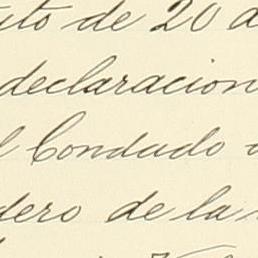 uto de 20 a
declaracion
l Condado
dero de la